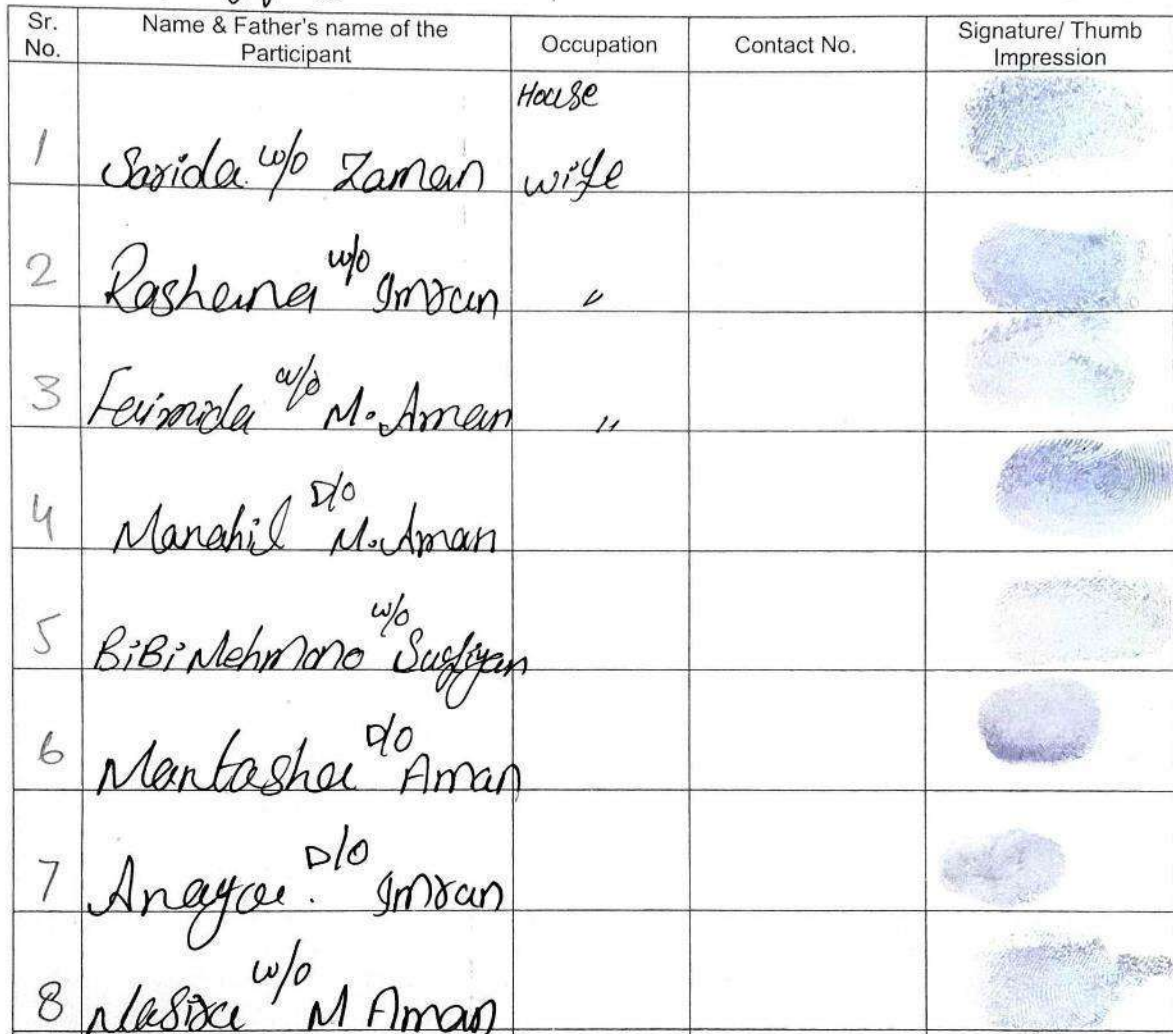 Sr. No. Name & Father's name of the Participant Occupation Contact No. Signature/ Thumb Impression
1 Sarida w/o Zaman House wife
2 Rashana w/o Imran "
3 Faimida w/o M. Aman "
4 Manahil D/o M. Aman
5 BiBi Mehmono w/o Sugfiyan
6 Mantasha D/o Aman
7 Anaya. D/o Imran
8 Nasira w/o M Aman